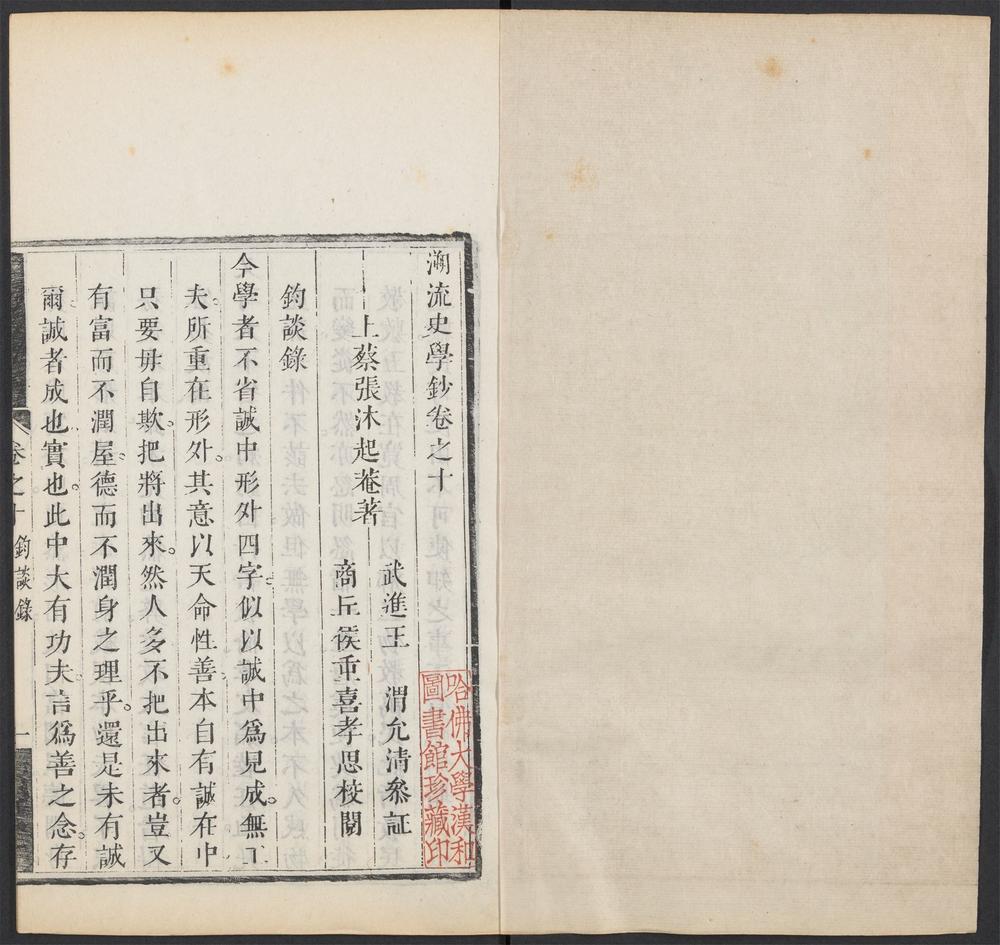 溯流史學鈔卷之十
上蔡張沐起菴著
武進王渭允清叅証
商丘侯重喜孝思校閱
鈞談錄
今學者不省誠中形外四字似以誠中爲見成無工
夫所重在形外其意以天命性善本自有誠在中
只要毋自欺把將出來然人多不把出來者豈又
有富而不潤屋德而不潤身之理乎還是未有誠
爾誠者成也實也此中大有功夫言爲善之念存
卷之十 鈞談錄 一
哈佛大學漢和
圖書館珍藏印